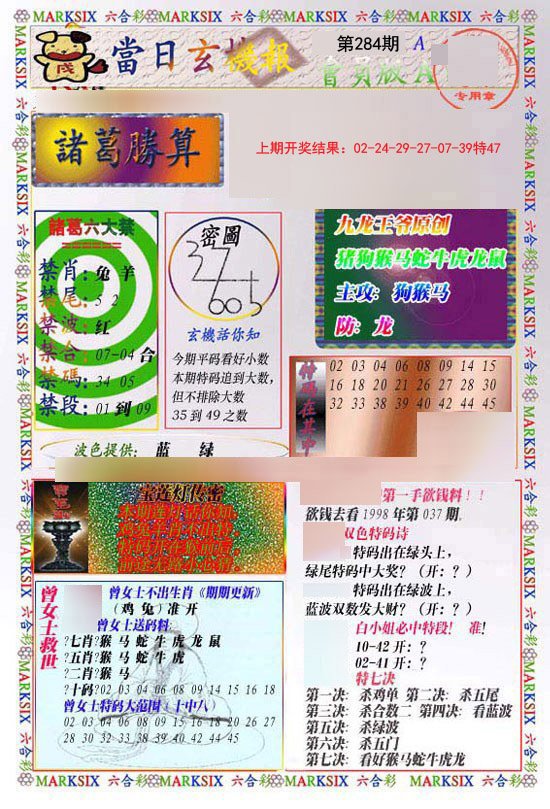 MARKSIX 六合彩 MARKSIX 六合彩 MARKSIX 六合彩 MARKSIX 六合彩 MARKSIX 六合彩
當日玄機報
第284期 A
會員版A
专用章
諸葛勝算
上期开奖结果：02-24-29-27-07-39特47
諸葛六大禁
禁肖：兔 羊
禁尾：5 2
禁波：红
禁合：07-04 合
禁碼：34 05
禁段：01 到 09
密圖
玄機話你知
今期平码看好小数
本期特码追到大数，
但不排除大数
35 到 49 之数
九龙王爷原创
猪狗猴马蛇牛虎龙鼠
主攻：狗猴马
防：龙
特码在其中
02 03 04 06 08 09 14 15
16 18 20 21 26 27 28 30
32 33 38 39 40 42 44 45
波色提供：蓝 绿
宝莲灯传密
曾女士救世
曾女士不出生肖《期期更新》
（鸡 兔）准 开
曾女士送码料
?七肖?猴 马 蛇 牛 虎 龙 鼠
?五肖?猴 马 蛇 牛 虎
?二肖?猴 马
?十码?02 03 04 06 08 09 14 15 16 18
曾女士特码大范围（十中八）
02 03 04 06 08 09 15 16 18 20 26 27
28 30 32 33 38 39 40 42 44 45
第一手欲钱料！！
欲钱去看 1998 年第 037 期.
双色特码诗
特码出在绿头上，
绿尾特码中大奖？（开：？）
特码出在绿波上，
蓝波双数发大财？（开：？）
白小姐必中特段！ 准！
10-42 开：？
02-41 开：？
特七决
第一决：杀鸡单 第二决：杀五尾
第三决：杀合数二 第四决：看蓝波
第五决：杀绿波
第六决：杀五门
第七决：看好猴马蛇牛虎龙
MARKSIX 六合彩 MARKSIX 六合彩 MARKSIX 六合彩 MARKSIX 六合彩 MARKSIX 六合彩